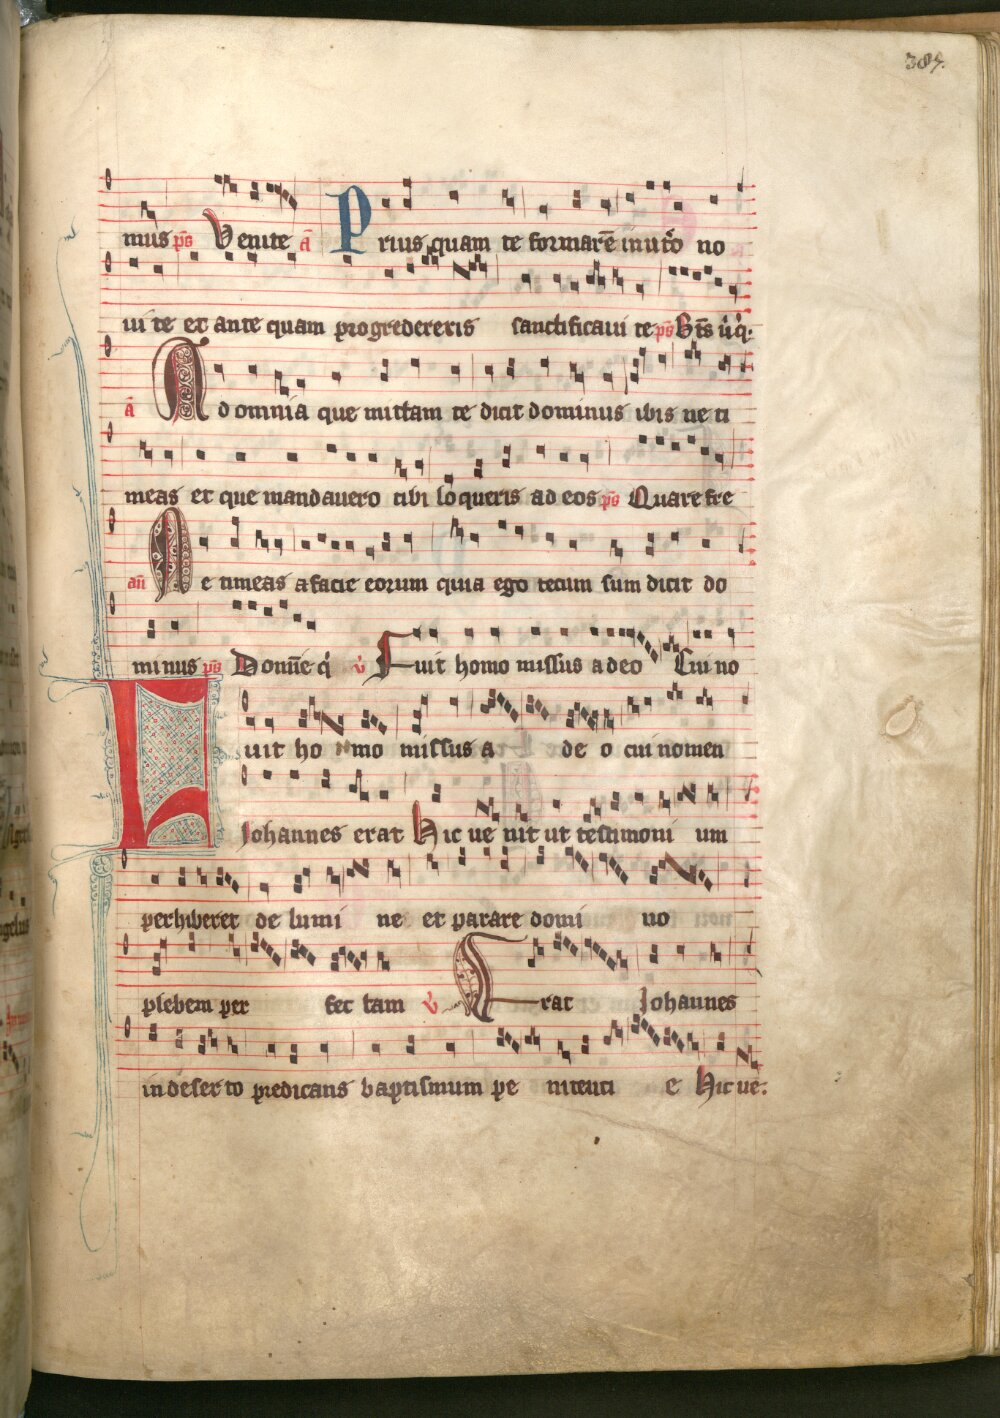 389.
mus p̄s Venite ā Prius quam te formarē in utōo no
ui te et ante quam progredereris sanctificaui te ps Bt̄s uir q.
ā Ad omnia que mittam te dicit dominus ibis ne ti
meas et que mandauero tibi loqueris ad eos ps Quare fre
an̄ Ne timeas a facie eorum quia ego tecum sum dicit do
minus ps Domīe q v Fuit homo missus a deo Cui no
Fuit ho mo missus a de o cui nomen
Johannes erat Hic ue nit ut testimoni um
perhiberet de lumi ne et parare domi no
plebem per fec tam v Erat Johannes
in deserto predicans baptismum pe nitenti e Hic ue.